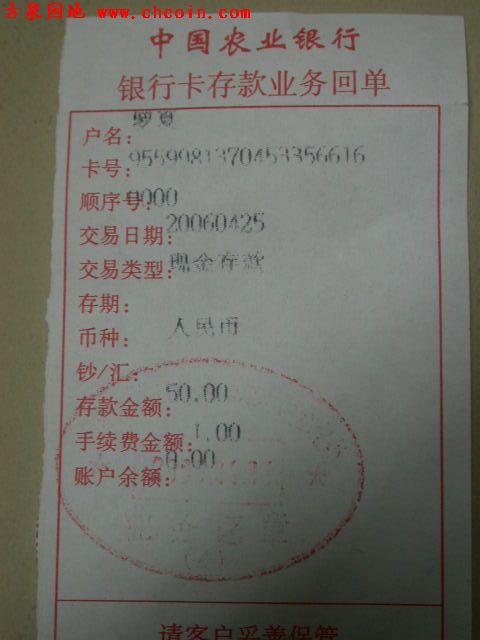 古泉园地 www.chcoin.com
中国农业银行
银行卡存款业务回单
户名:
卡号: 9559981370453356616
顺序号: 0000
交易日期: 20060425
交易类型: 现金存款
存期:
币种: 人民币
钞/汇:
存款金额: 50.00
手续费金额: 1.00
账户余额: 0.00
请客户妥善保管